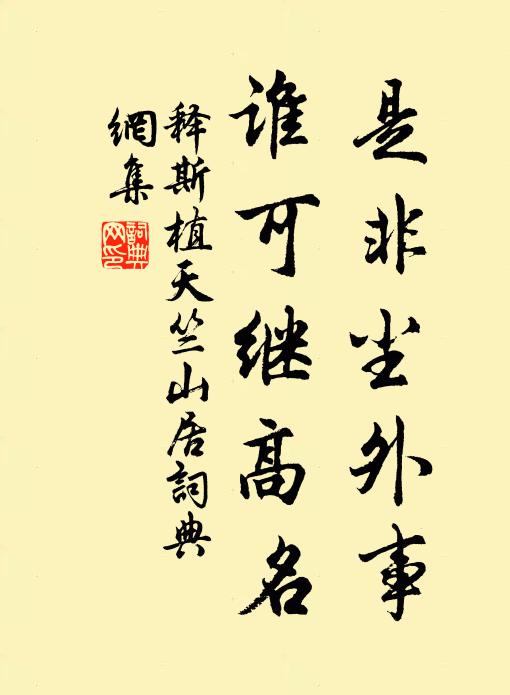 是非尘外事
谁可继高名
释斯植天竺山居詞典
網集
詞典
网印